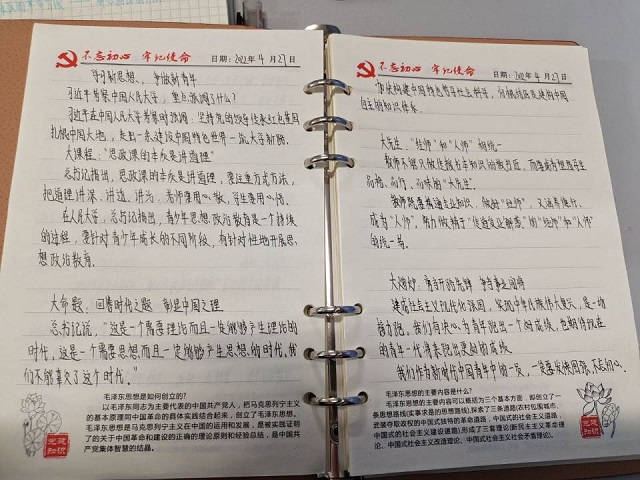 不忘初心 牢记使命 日期：2022年4月27日
学习新思想，争做新青年
习近平考察中国人民大学，重点强调了什么？
习近平在中国人民大学考察时强调：坚持党的领导传承红色基因
扎根中国大地，走出一条建设中国特色世界一流大学新路。
大课程："思政课的本质是讲道理"
总书记指出，思政课的本质是讲道理，要注重方式方法，
把道理讲深、讲透、讲活，老师要用心教，学生要用心悟。
在人民大学，总书记指出，青少年思想政治教育是一个持续
的过程，要针对青少年成长的不同阶段，有针对性地开展思
想政治教育。
大命题：回答时代之题 彰显中国之理
总书记说："这是一个需要理论而且一定能够产生理论的
时代，这是一个需要思想而且一定能够产生思想的时代，我
们不能辜负了这个时代。"
毛泽东思想是如何创立的？
以毛泽东同志为主要代表的中国共产党人，把马克思列宁主义
的基本原理同中国革命的具体实践结合起来，创立了毛泽东思想。
毛泽东思想是马克思列宁主义在中国的运用和发展，是被实践证明
了的关于中国革命和建设的正确的理论原则和经验总结，是中国共
产党集体智慧的结晶。
党建
知识
不忘初心 牢记使命 日期：2022年4月27日
加快构建中国特色哲学社会科学，归根结底是建构中国
自主的知识体系。
大先生："经师"和"人师"相统一
教师不能只做传授书本知识的教书匠，而要成为塑造学生
品格、品行、品味的"大先生"。
教师既要精通专业知识，做好"经师"，又涵养德行，
成为"人师"，努力做精于"传道授业解惑"的"经师"和"人师"
的统一者。
大期盼：勇当开路先锋 争当事业闯将
建成社会主义现代化强国，实现中华民族伟大复兴，是一场
接力跑，我们有决心为青年跑出一个好成绩，也期待现在
的青年一代将来跑出更好的成绩
我们作为新时代中国青年中的一员，一定要发愤图强，不忘初心。
毛泽东思想的主要内容是什么？
毛泽东思想的主要内容可以概括为三个基本方面，即创立了一
条思想路线(实事求是的思想路线)，探索了三条道路(农村包围城市、
武装夺取政权的中国式独特的革命道路，中国式的社会主义改造道路，
中国式的社会主义建设道路)，形成了三套理论(新民主主义革命理
论、中国式社会主义改造理论、中国式社会主义社会矛盾理论)。
党建
知识